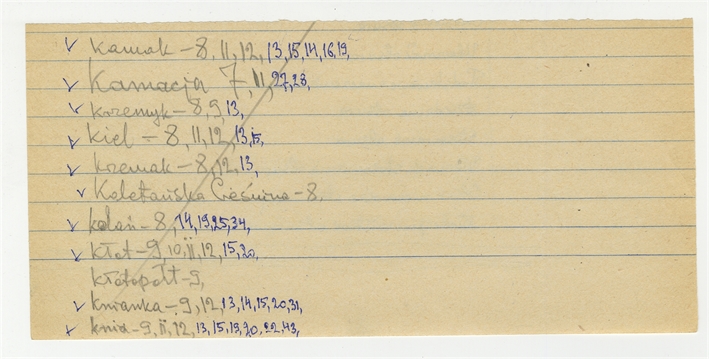 ✓ Kamak – 8, 11, 12, 13, 15, 14, 16, 19,
✓ Kamacja 7, 11, 27, 28,
✓ krzemyk – 8, 9, 13,
✓ kiel – 8, 11, 12, 13, 15,
✓ krzemak – 8, 12, 13,
✓ Cieśnina – 8,
✓ – 8, 14, 19, 25, 34,
✓ kłot – 9, 10, 11, 12, 15, 20,
kłotopołt – 9,
✓ knianka – 9, 12, 13, 14, 15, 20, 31,
✓ knia – 9, 11, 12, 13, 15, 19, 20, 22, 43,